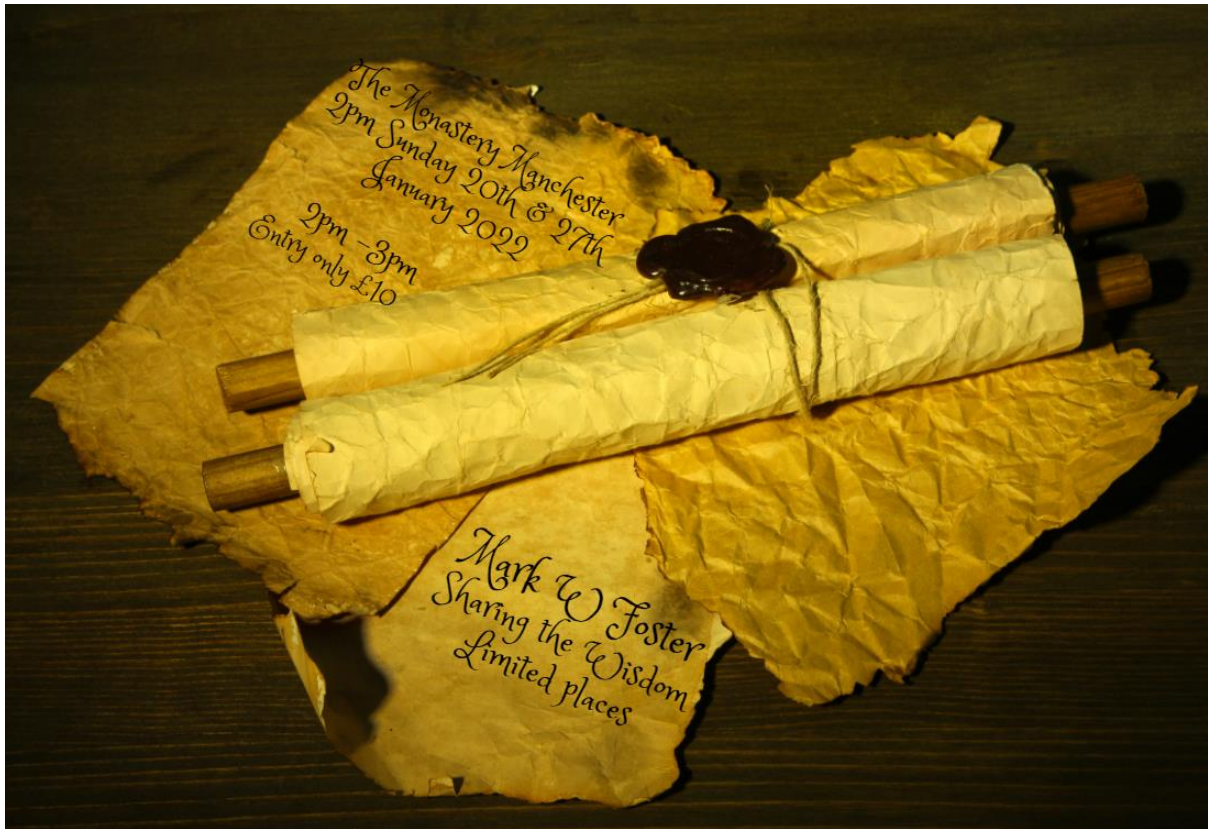 The Monastery Manchester
2pm Sunday 20th & 27th
January 2022
2pm -3pm
Entry only £10
Mark W Foster
Sharing the Wisdom
Limited places